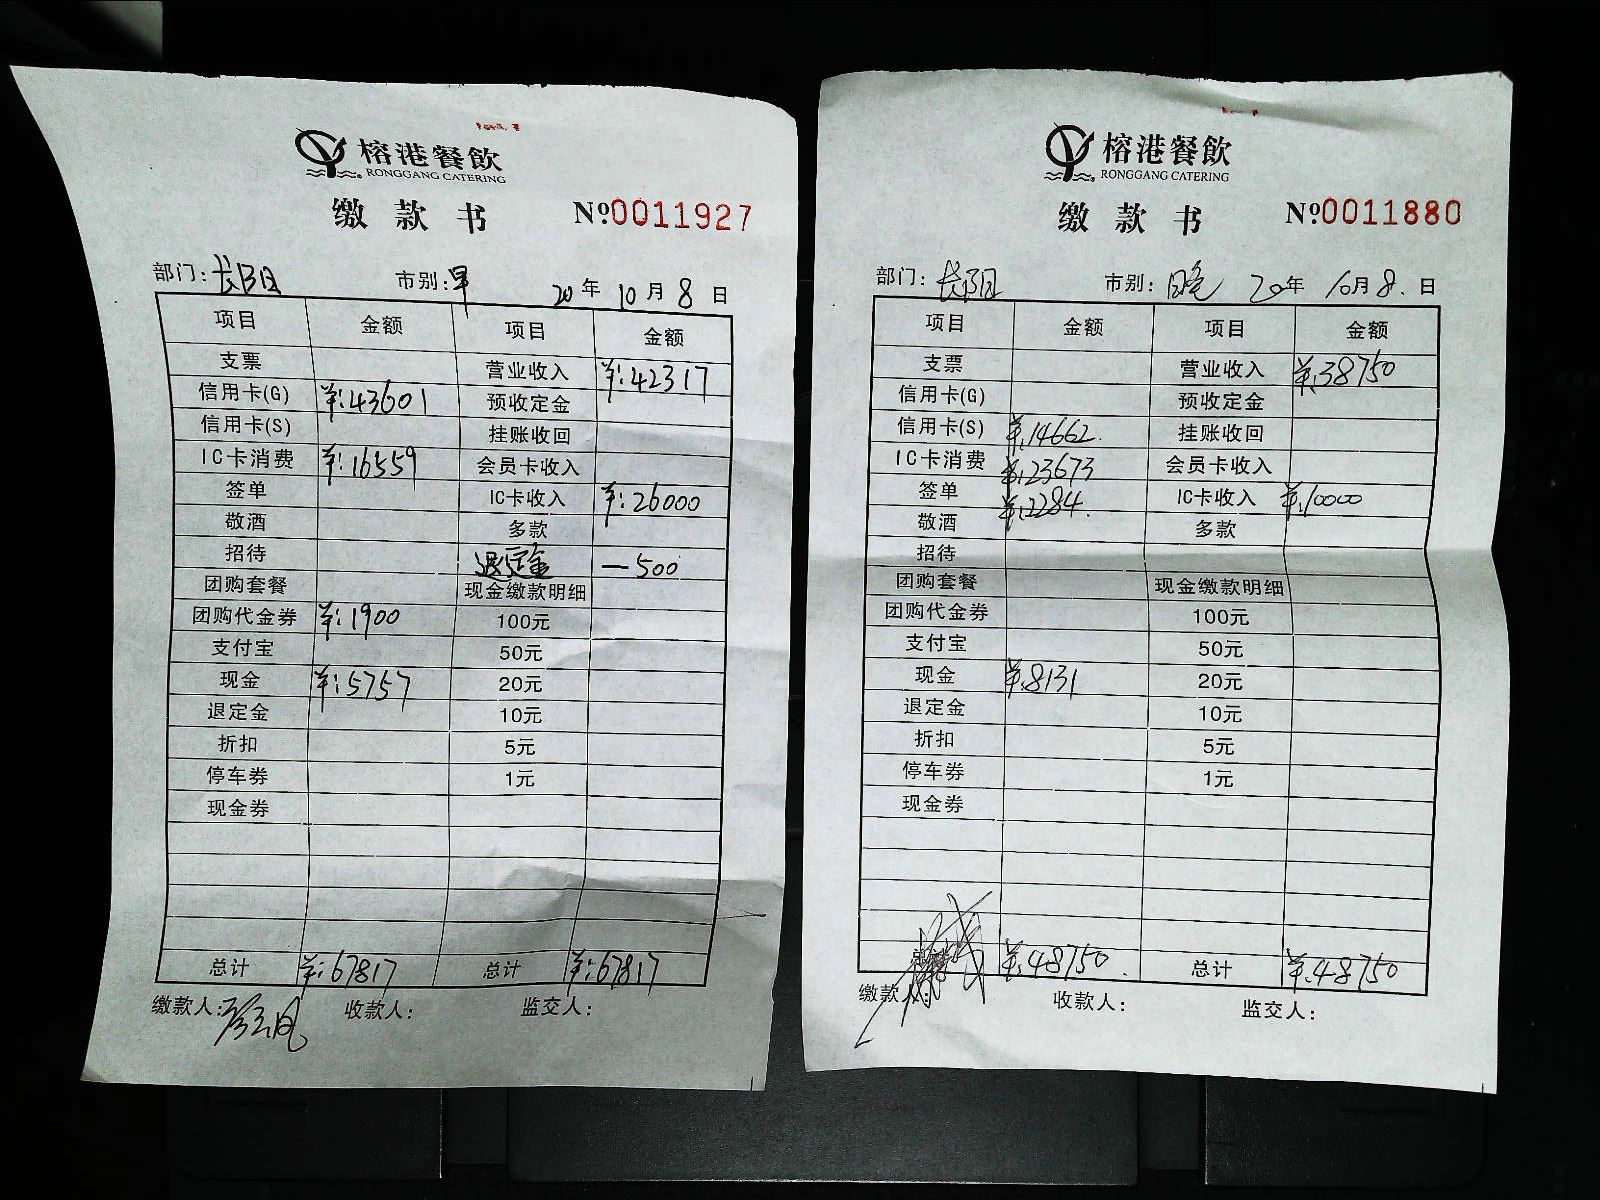 榕港餐飲
RONGGANG CATERING
缴款书 №0011927
部门:长阳 市别:早 20年10月8日
项目 金额 项目 金额
支票 营业收入 ¥:42317
信用卡(G) ¥:43601 预收定金
信用卡(S) 挂账收回
IC卡消费 ¥:16559 会员卡收入
签单 IC卡收入 ¥:26000
敬酒 多款
招待 退定金 -500
团购套餐 现金缴款明细
团购代金券 ¥:1900 100元
支付宝 50元
现金 ¥:5757 20元
退定金 10元
折扣 5元
停车券 1元
现金券
总计 ¥:67817 总计 ¥:67817
缴款人: 收款人: 监交人:
榕港餐飲
RONGGANG CATERING
缴款书 №0011880
部门:长阳 市别:晚 20年10月8日
项目 金额 项目 金额
支票 营业收入 ¥:38750
信用卡(G) 预收定金
信用卡(S) ¥:14662 挂账收回
IC卡消费 ¥:23673 会员卡收入
签单 ¥:2284 IC卡收入 ¥:10000
敬酒 多款
招待
团购套餐 现金缴款明细
团购代金券 100元
支付宝 50元
现金 ¥:8131 20元
退定金 10元
折扣 5元
停车券 1元
现金券
总计 ¥:48750 总计 ¥:48750
缴款人: 收款人: 监交人: